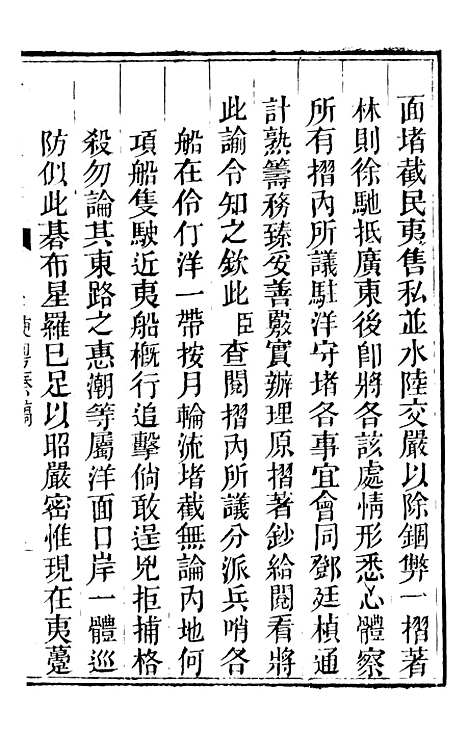 面堵截民夷售私並水陸交嚴以除錮弊一摺著
林則徐馳抵廣東後卽將各該處情形悉心體察
所有摺內所議駐洋守堵各事宜會同鄧廷楨通
計熟籌務臻妥善覈實辦理原摺著鈔給閱看將
此諭令知之欽此臣查閱摺內所議分派兵哨各
船在伶仃洋一帶按月輪流堵截無論內地何
項船隻駛近夷船槪行追擊倘敢逞兇拒捕格
殺勿論其東路之惠潮等屬洋面口岸一體巡
防似此碁布星羅巳足以昭嚴密惟現在夷躉
使粵奏稿